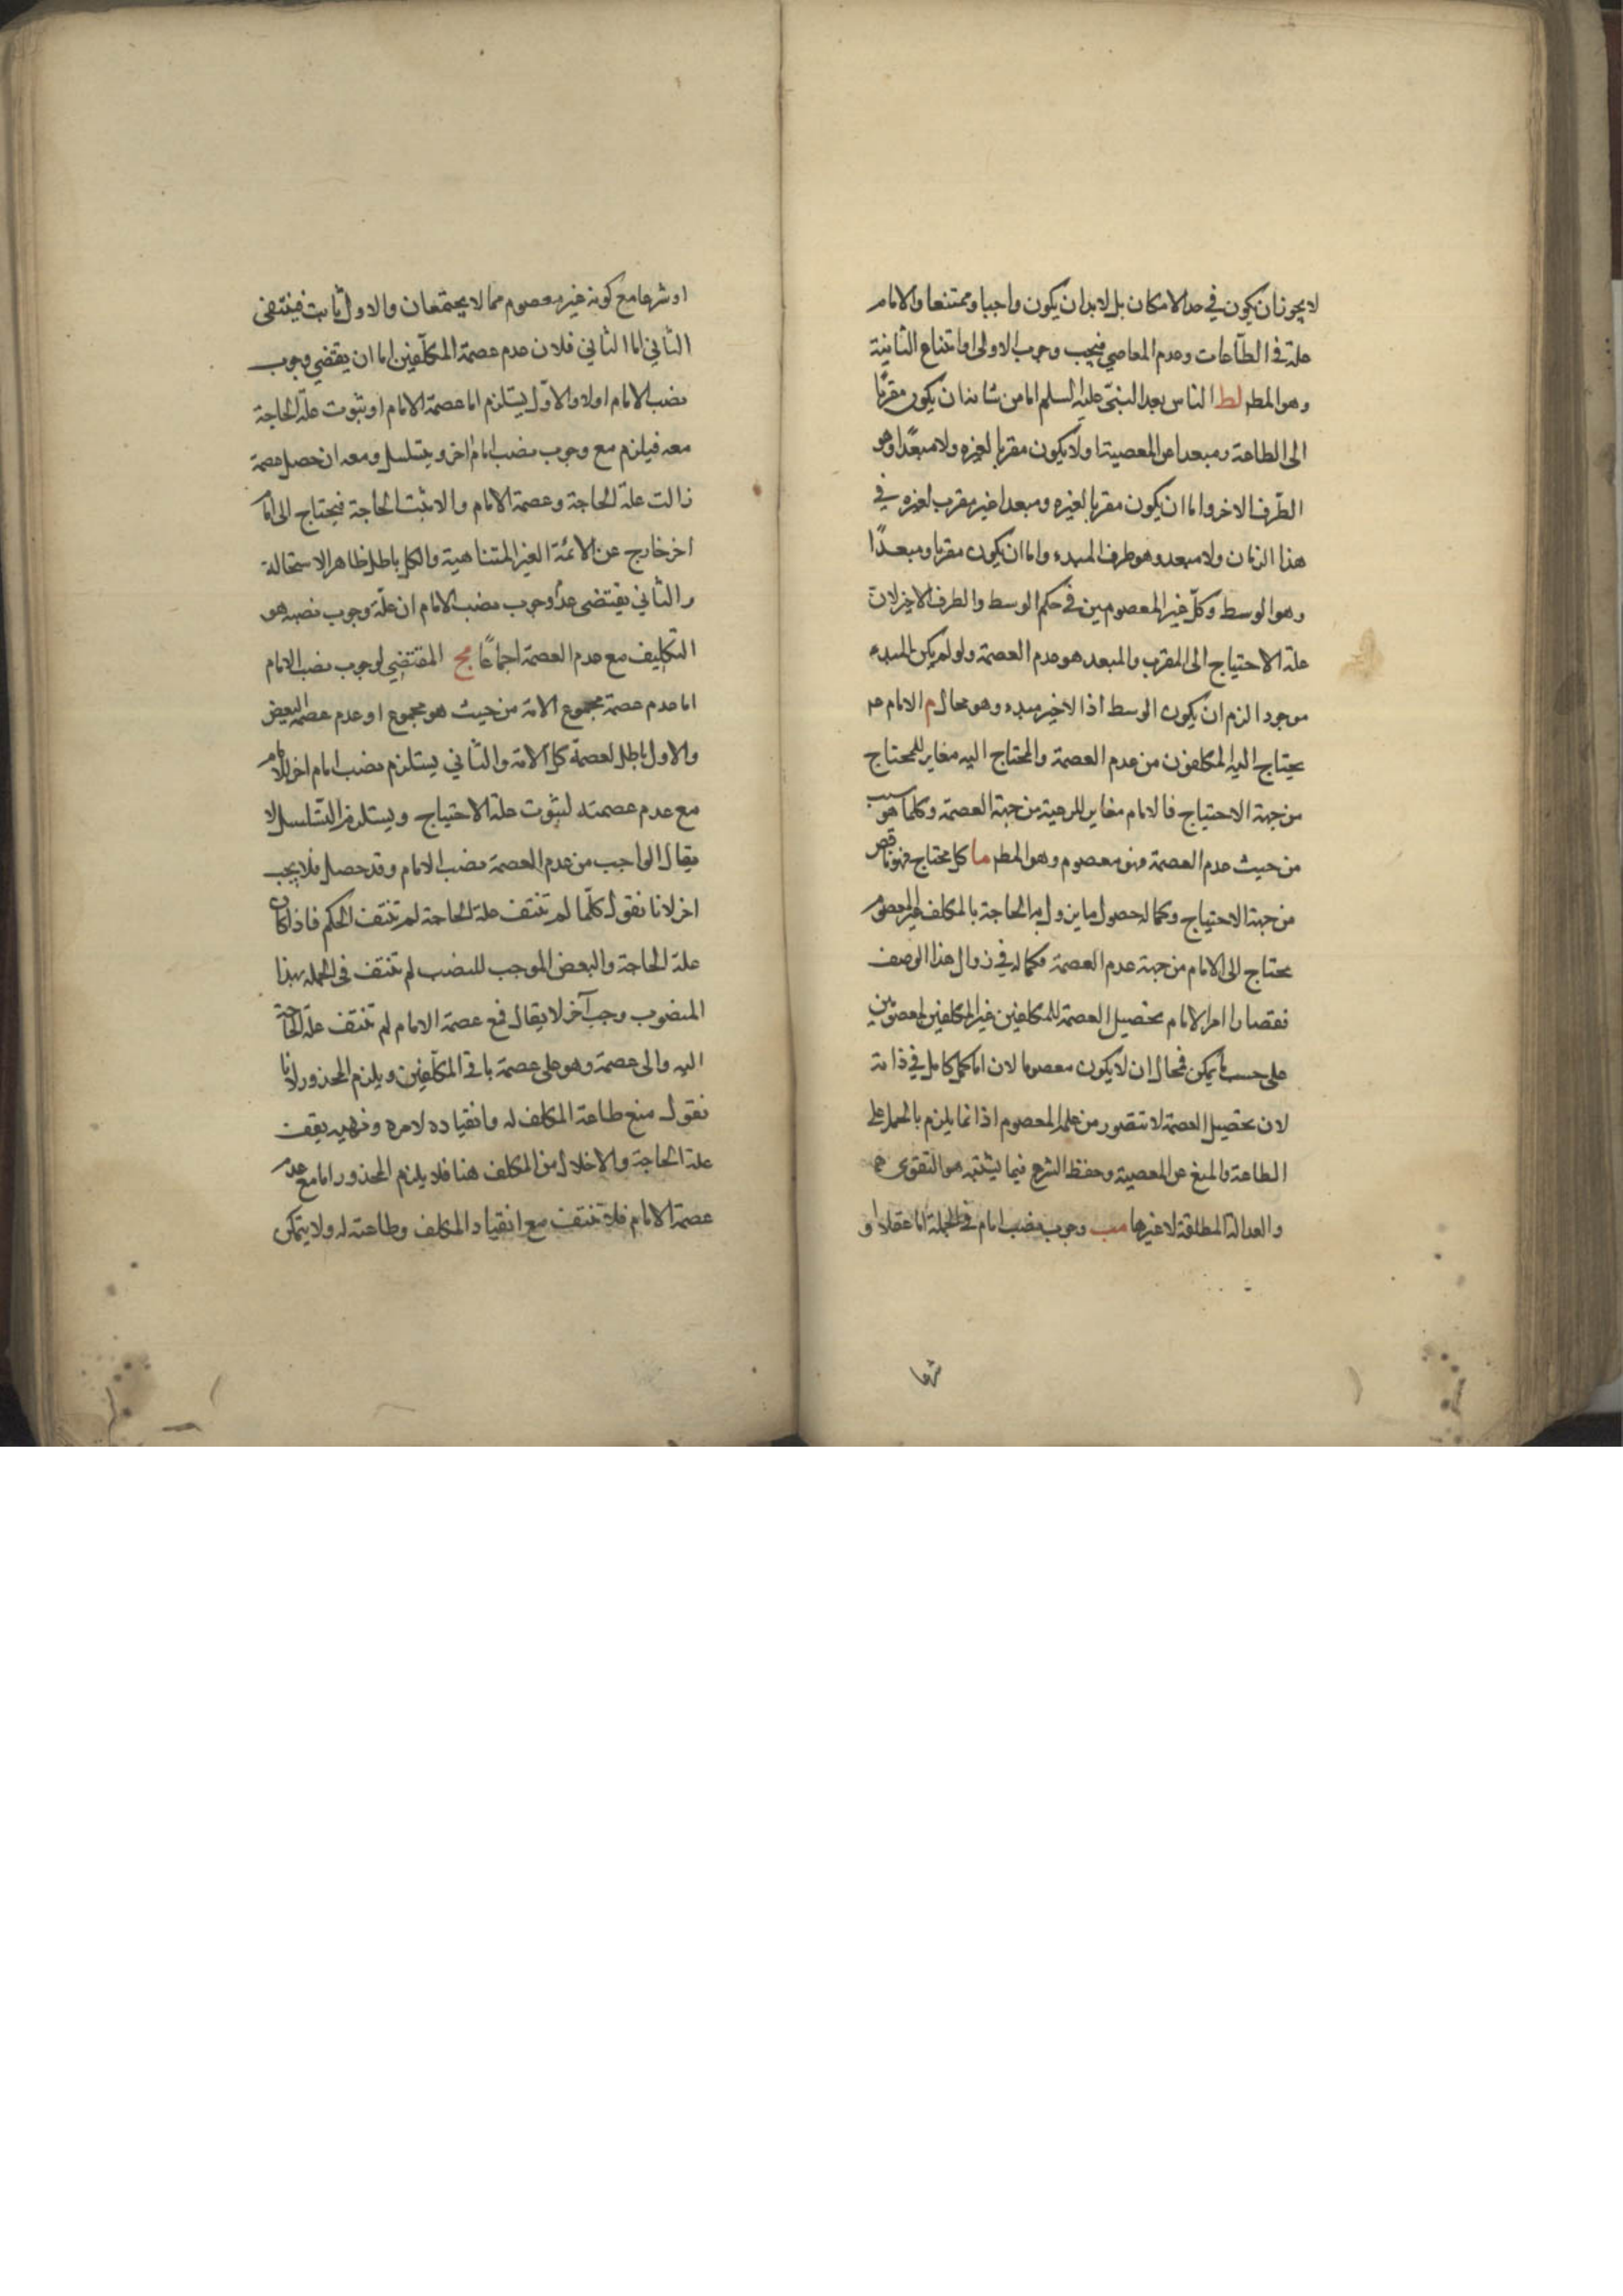 لا يجوز ان يكون في حد الامكان بل لا بد ان يكون واجبا وممتنعا والامام
علة في الطاعات وعدم المعاصي فيجب وجوب الاولى وامتناع الثانية
وهو المطم لط الناس بعد النبي عليه السلم اما من شانه ان يكون مقربا
الى الطاعة ومبعدا عن المعصية اولا يكون مقربا لغيره ولا مبعدا وهو
الطرف الاخر واما ان يكون مقربا لغيره ومبعدا غير مقرب لغيره في
هذا الزمان ولا مبعد وهو طرف المبدء واما ان يكون مقربا ومبعدا
وهو الوسط وكل غير المعصومين في حكم الوسط والطرف الاخير لان
علة الاحتياج الى المقرب والمبعد هو عدم العصمة ولو لم يكن المبدء
موجودا لزم ان يكون الوسط اذا الاخير مبدء وهو محال م الامام
يحتاج اليه المكلفون من عدم العصمة والمحتاج اليه مغاير للمحتاج
من جهة الاحتياج فالامام مغاير للرعية من جهة العصمة وكلما هو سبب
من حيث عدم العصمة فهو معصوم وهو المطم ما كل محتاج فهو ناقص
من جهة الاحتياج وكماله حصول ما يزول به الحاجة بالمكلف غير المعصوم
محتاج الى الامام من جهة عدم العصمة فكماله في زوال هذا الوصف
فقصارا امر الامام تحصيل العصمة للمكلفين غير المكلفين المعصومين
على حسب ما يمكن فمحال ان لا يكون معصوما لان اما كمل كامل في ذاته
لان تحصيل العصمة لا تتصور من علم المعصوم اذ انما يلزم بالحمل على
الطاعة والمنع عن المعصية وحفظ الشرع فيما يشتبه هو التقوى
والعدالة المطلقة لا غيرها مب وجوب نصب امام في الجملة اما عقلا او
شرعا
او شرعا مع كونه غير معصوم مما لا يجتمعان والاول ثابت فينتفى
الثاني اما الثاني فلان عدم عصمة المكلفين اما ان يقتضي وجوب
نصب الامام اولا والاول يستلزم اما عصمة الامام او ثبوت علة الحاجة
معه فيلزم مع وجوب نصب امام اخر ويتسلسل ومعه ان حصل عصمة
زالت علة الحاجة وعصمة الامام والا ثبت الحاجة فيحتاج الى امام
اخر خارج عن الائمة الغير المتناهية والكل باطل ظاهر الاستحالة
والثاني يقتضى عدم وجوب نصب الامام ان علة وجوب نصبه هو
التكليف مع عدم العصمة اجماعا مج المقتضي لوجوب نصب الامام
اما عدم عصمة مجموع الامة من حيث هو مجموع او عدم عصمة البعض
والاول باطل لعصمة كل الامة والثاني يستلزم نصب امام اخر للامام
مع عدم عصمته لثبوت علة الاحتياج ويستلزم التسلسل لا
يقال الواجب من عدم العصمة نصب الامام وقد حصل فلا يجب
اخر لانا نقول كلما لم تنتف علة الحاجة لم تنتف الحكم فاذا كان
علة الحاجة والبعض الموجب للنصب لم تنتف في الجملة بهذا
المنصوب وجب آخر لا يقال فمع عصمة الامام لم تنتف علة الحاجة
اليه والى عصمة وهو على عصمة باقي المكلفين ويلزم المحذور لانا
نقول منع طاعة المكلف له وانقياده لامره ونهيه يقف
علة الحاجة والاخلال من المكلف هنا فلا يلزم المحذور اما مع عدم
عصمة الامام فلا تنتف مع انقياد المكلف وطاعته له ولا يتمكن